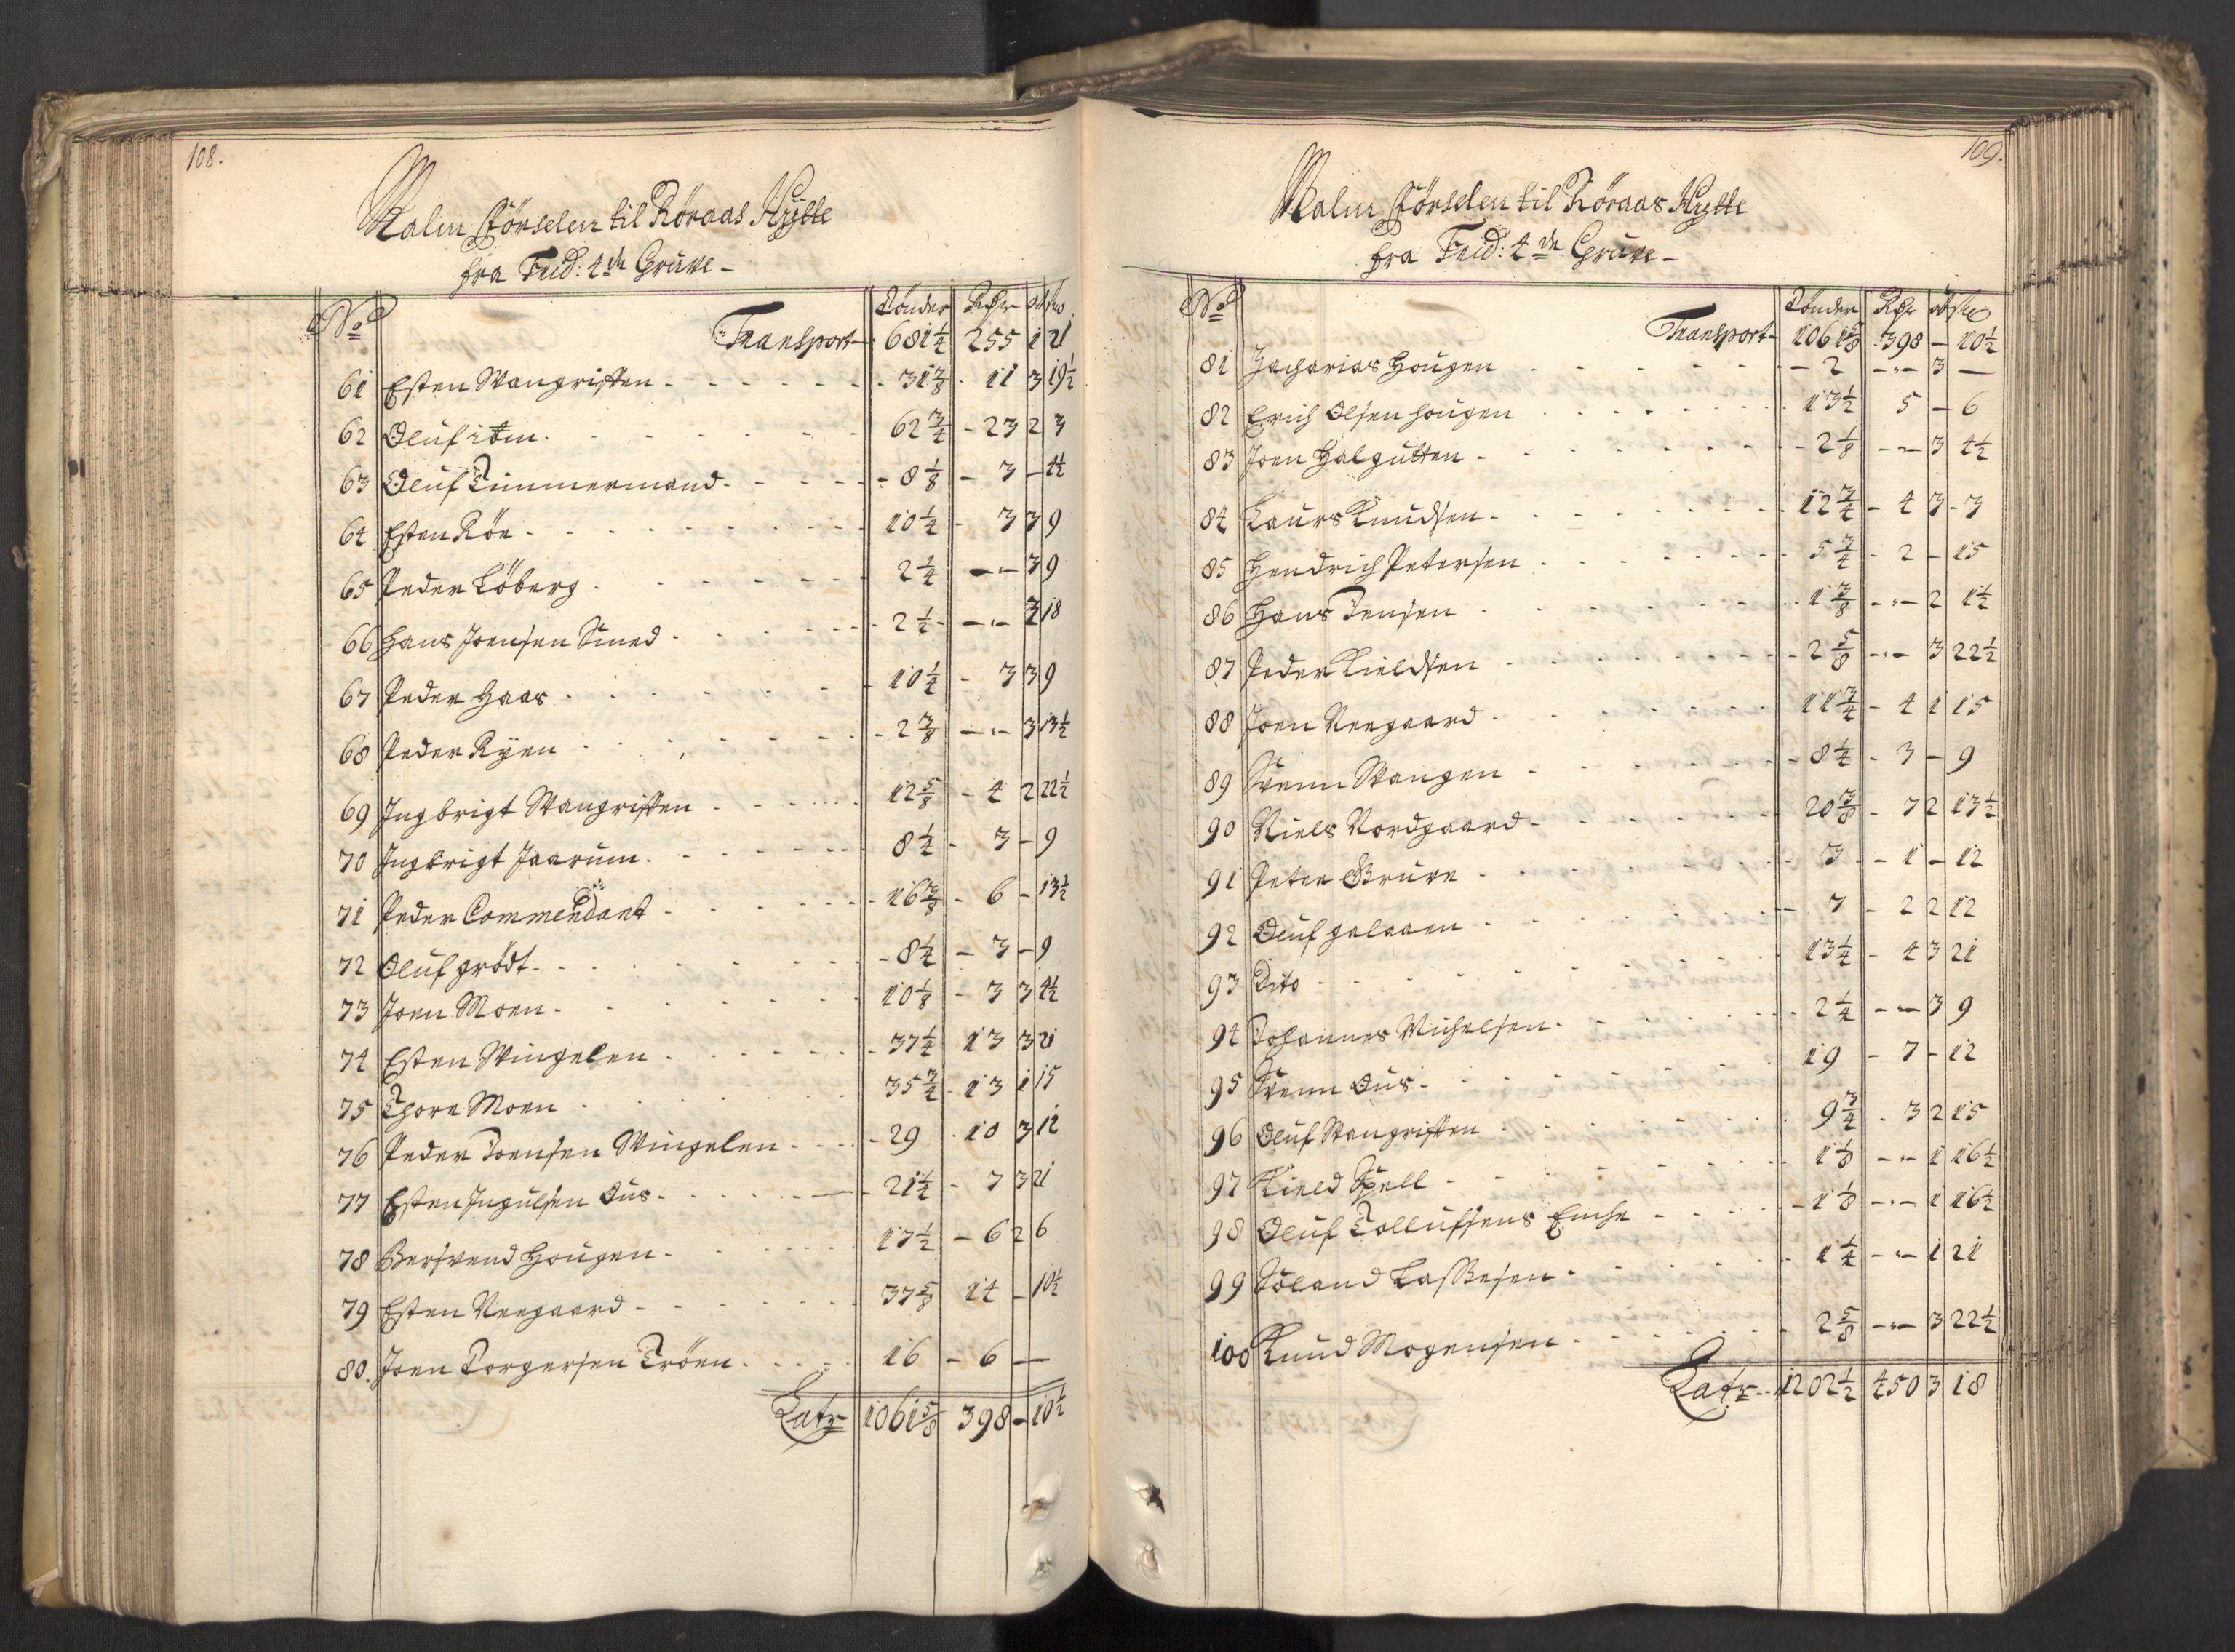 108.
Malm Förselen til Röraas Hytte
fra Frid: 4de Gruve -
No Tönder Rdr ort s
Transport 681 1/4 255 1 21
61 Esten Wangriften 31 7/8 11 3 19 1/2
62 Oluf item 62 3/4 23 2 3
63 Oluf Timmermand 8 1/8 3 - 4 1/2
64 Esten Röe 10 1/4 3 3 9
65 Peder Löberg 2 1/4 - 3 9
66 Hans Joensen Smed 2 1/2 - 3 18
67 Peder Haas 10 1/4 3 3 9
68 Peder Ryen 2 3/8 - 3 13 1/2
69 Ingbrigt Wangriften 12 5/8 4 2 22 1/2
70 Ingbrigt Jaarum 8 1/4 3 - 9
71 Peder Commendant 16 3/8 6 - 13 1/2
72 Oluf grödt 8 1/4 3 - 9
73 Joen Moen 10 1/8 3 3 4 1/2
74 Esten Wingelen 37 1/4 13 3 21
75 Thore Moen 35 3/4 13 1 15
76 Peder Joensen Wingelen 29 10 3 12
77 Esten Ingulsen Aus 21 1/4 7 3 21
78 Bersvend Hougen 17 1/2 6 2 6
79 Esten Neegaard 37 5/8 14 - 10 1/2
80. Joen Torgersen Tröen 16 6 -
Latr 1061 5/8 398 - 10 1/2
109.
Malm Förselen til Röraas Hytte
fra Frid: 4de Gruve -
No Tönder Rdr ort s
Transport 1061 5/8 398 - 10 1/2
81 Zacharias Hougen 2 - 3 -
82 Erich Olsen Hougen 13 1/2 5 - 6
83 Joen Halgutten 2 1/8 - 3 4 1/2
84 Laurs Knudsen 12 3/4 4 3 3
85 Hendrich Petersen 5 3/4 2 - 15
86 Hans Jensen 1 3/8 - 2 1 1/2
87 Peder Kieldsen 2 5/8 - 3 22 1/2
88 Joen Neegaard 11 3/4 4 1 15
89 Svenn Wangen 8 1/4 3 - 9
90 Niels Nordgaard 20 3/8 7 2 13 1/2
91 Peter Gruve 3 1 - 12
92 Oluf galaaen 7 2 2 12
93 Dito 13 1/4 4 3 21
94 Johannes Michelsen 2 1/4 - 3 9
95 Svenn Aus 19 7 - 12
96 Oluf Wangriften 9 3/4 3 2 15
97 Kield Spell 1 1/8 - 1 16 1/2
98 Oluf Tollufsens Enche 1 1/8 - 1 16 1/2
99 Roland Lassesen 1 1/4 - 1 21
100 Knud Mogensen 2 5/8 - 3 22 1/2
Latr 1202 1/2 450 3 18